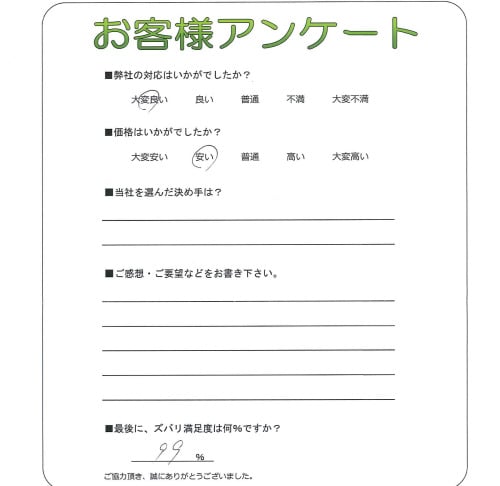 お客様アンケート
■弊社の対応はいかがでしたか？
大変良い 良い 普通 不満 大変不満
■価格はいかがでしたか？
大変安い 安い 普通 高い 大変高い
■当社を選んだ決め手は？
■ご感想・ご要望などをお書き下さい。
■最後に、ズバリ満足度は何%ですか？
99 %
ご協力頂き、誠にありがとうございました。